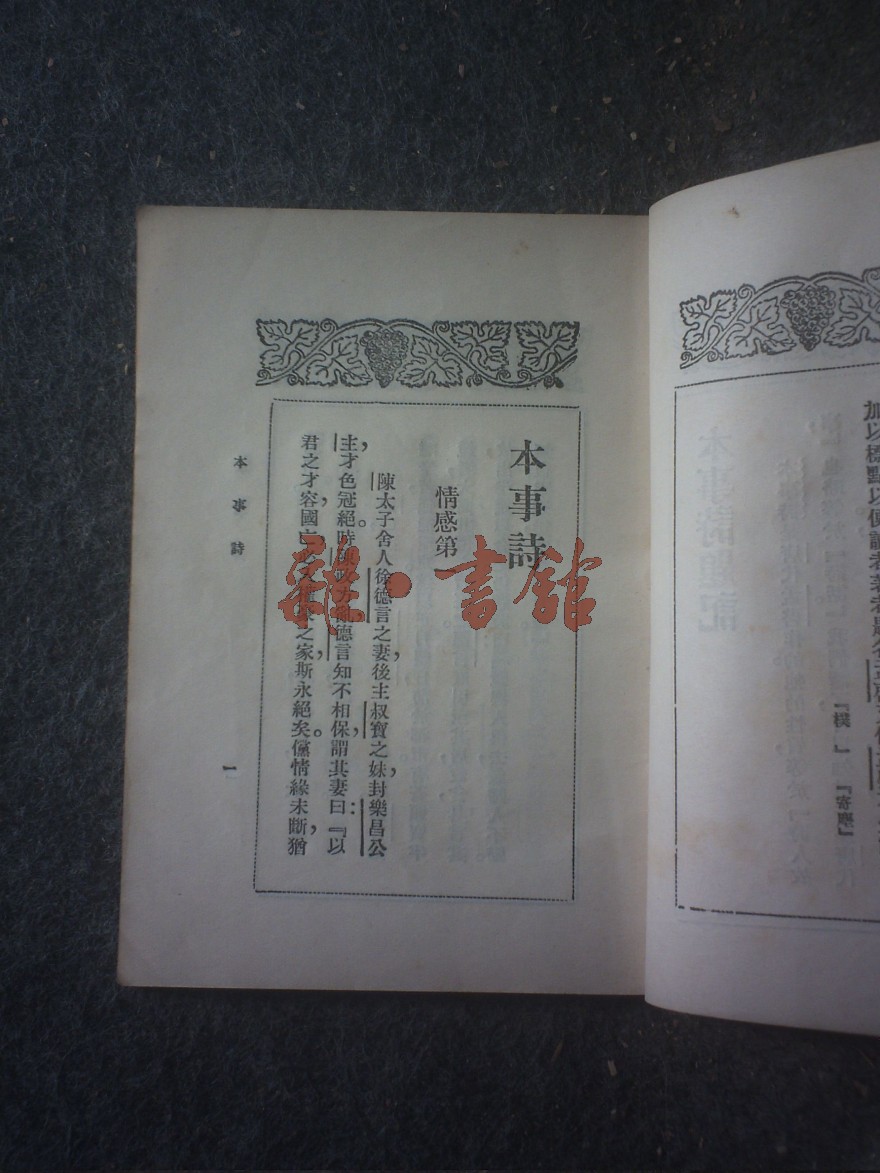 本事詩
情感第一
陳太子舍人徐德言之妻，後主叔寶之妹，封樂昌公
主，才色冠絕。時陳政方亂，德言知不相保，謂其妻曰：『以
君之才容，國亡必入權豪之家，斯永絕矣。儻情緣未斷，猶
本事詩
一
加以標點以便讀者著者
『寄塵』
雜·書館